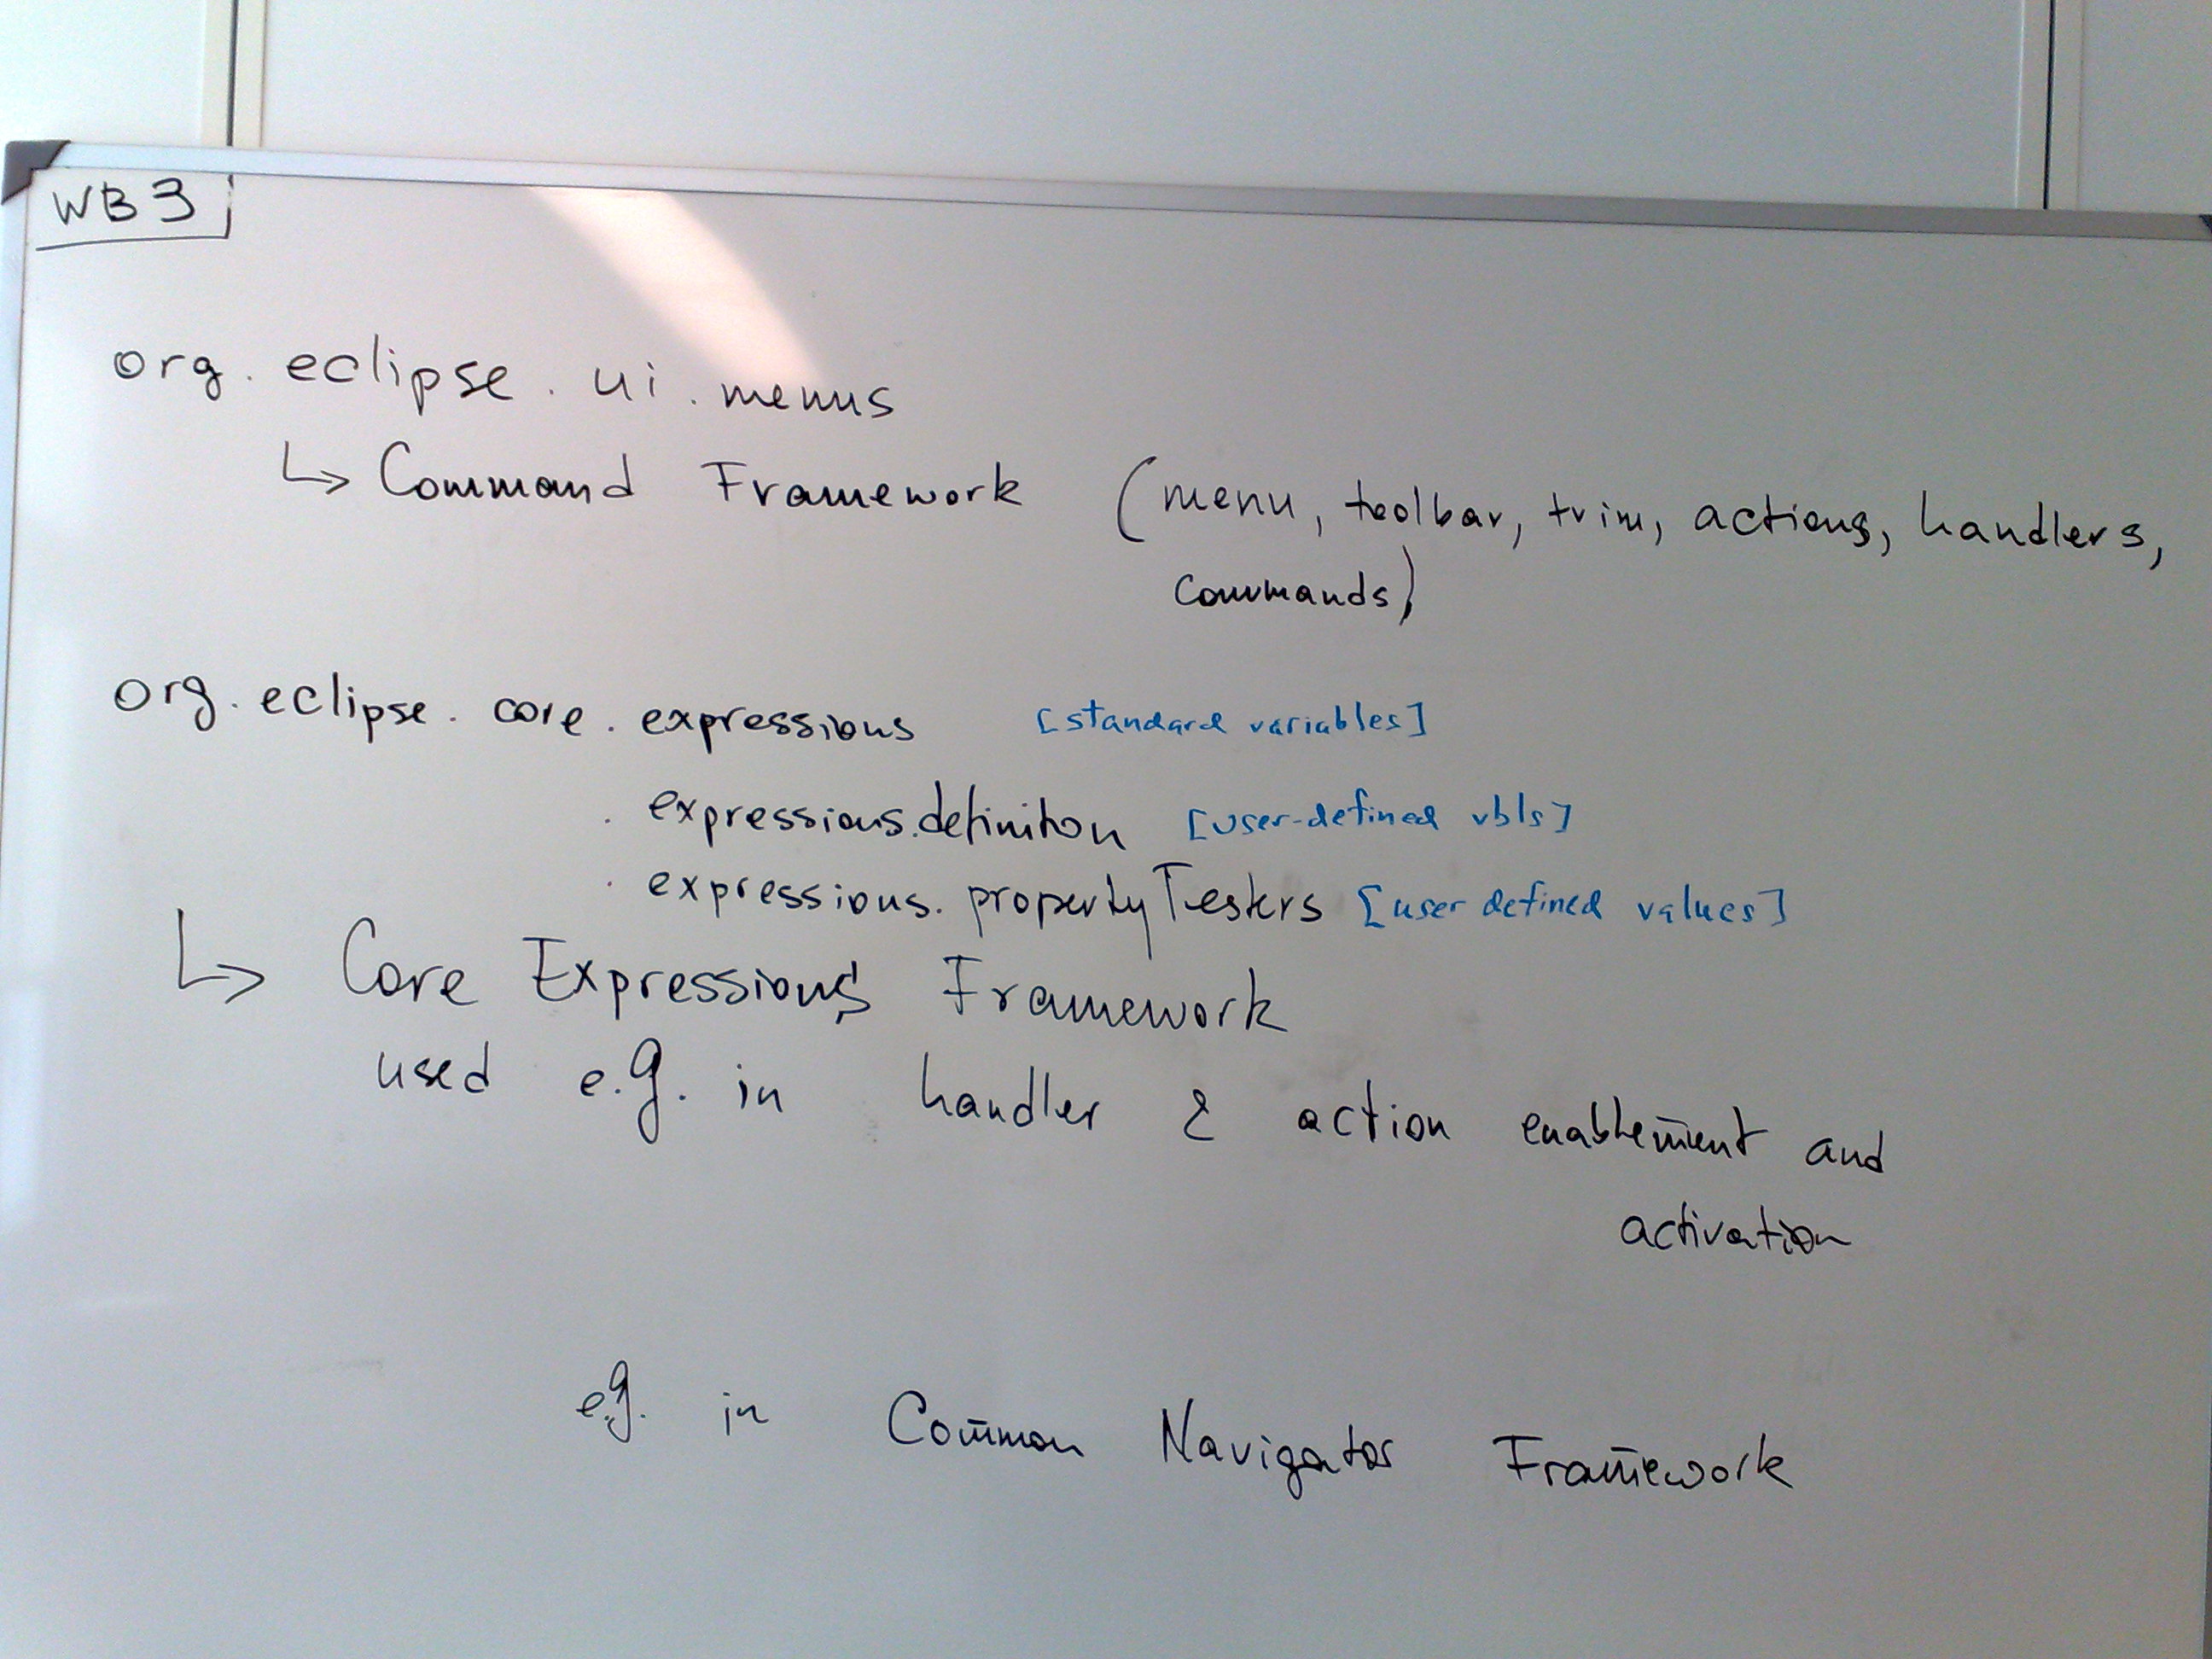 WB3
org.eclipse.ui.menus
↳ Command Framework (menu, toolbar, trim, actions, handlers,
commands)
org.eclipse.core.expressions [standard variables]
. expressions.definiton [user-defined vbls]
. expressions.propertyTesters [user defined values]
↳ Core Expressions Framework
used e.g. in handler & action enablement and
activation
e.g. in Common Navigator Framework